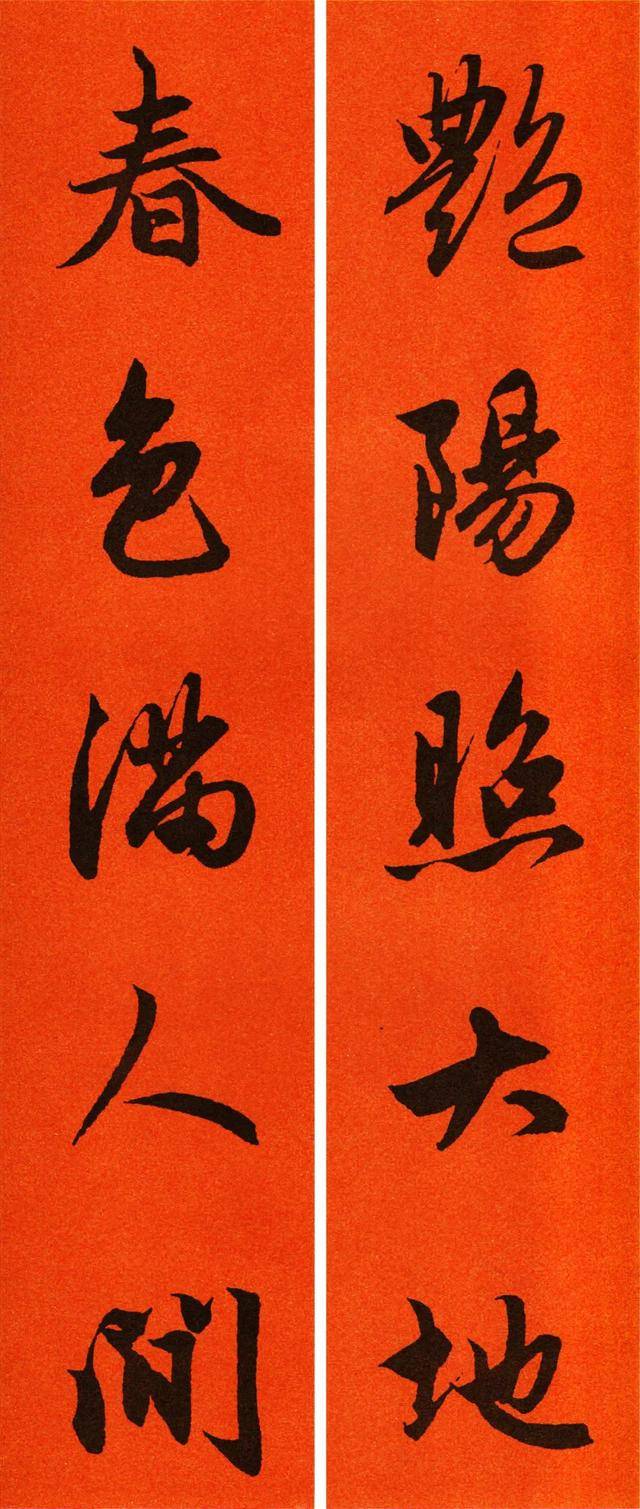 艷陽照大地
春色滿人間